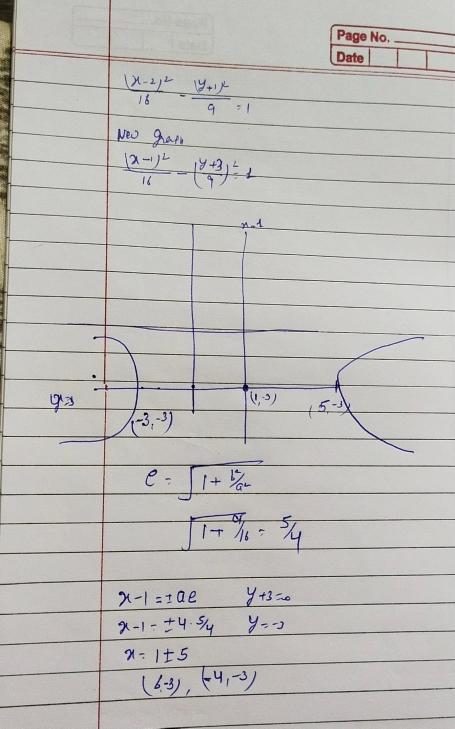 Page No.
Date
(x-2)²/16 - (y+1)²/9 = 1
New graph
(x-1)²/16 - (y+3/9)² = 1
x=1
y=-3
(-3,-3)
(1,-3)
(5,-3)
e = √1+b²/a²
√1+9/16 = 5/4
x-1 = ±ae y+3=0
x-1 = ±4·5/4 y=-3
x = 1±5
(6,-3), (-4,-3)